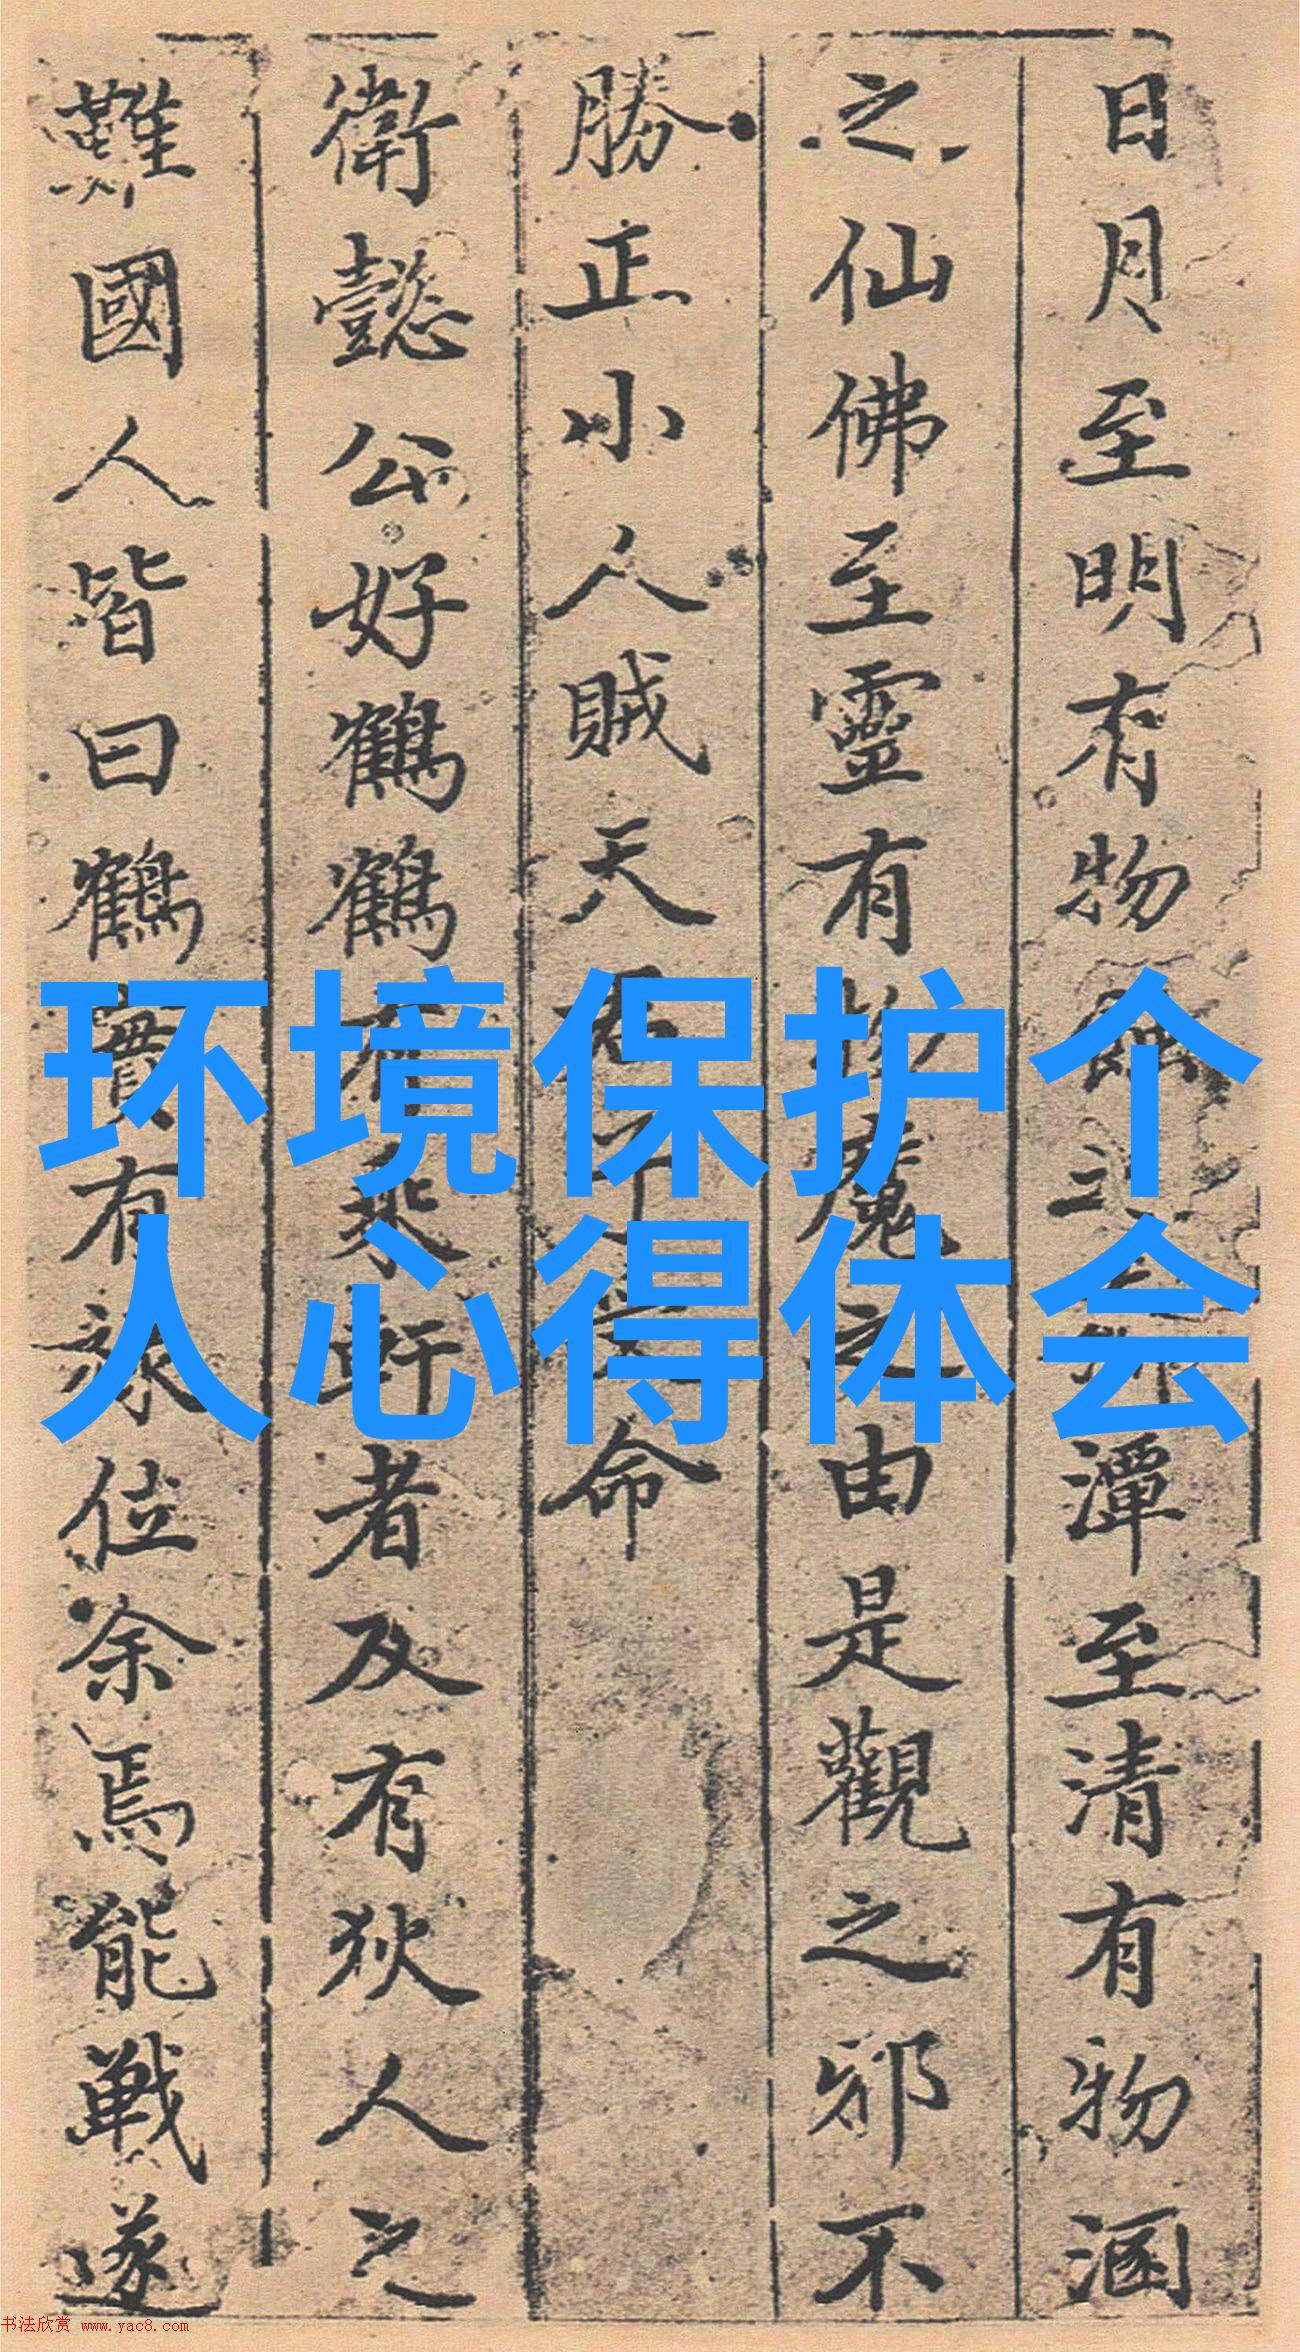 日月至明有物蝕三潭至清有物溷
之仙佛至靈有物魔之由是觀之邪不
勝正小人賊天君不受命
衛懿公好鶴鶴有乘軒者及有狄人之
難國人皆曰鶴實有祿位余焉能戰遂
环境保护个
人心得体会
书法欣赏 www.yac8.com